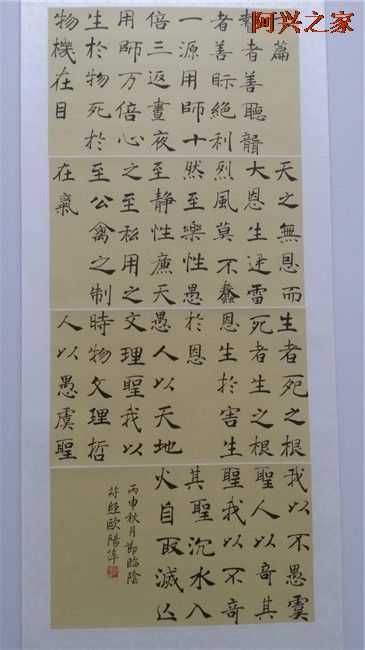 阿兴之家
篇
者善聽聾
者善眎絕利
一源用師十
倍三返晝夜
用師万倍心
生於物死於
物機在目
天之無恩而
大恩生迅雷
烈風莫不蠢
然至樂性愚
至靜性廉天
之至私用之
至公禽之制
在氣
生者死之根
死者生之根
恩生於害生
於恩
愚人以天地
文理聖我以
時物文理哲
人以愚虞聖
我以不愚虞
聖人以奇其
聖我以不奇
其聖沉水入
火自取滅亡
丙申秋月節臨陰
符經歐陽